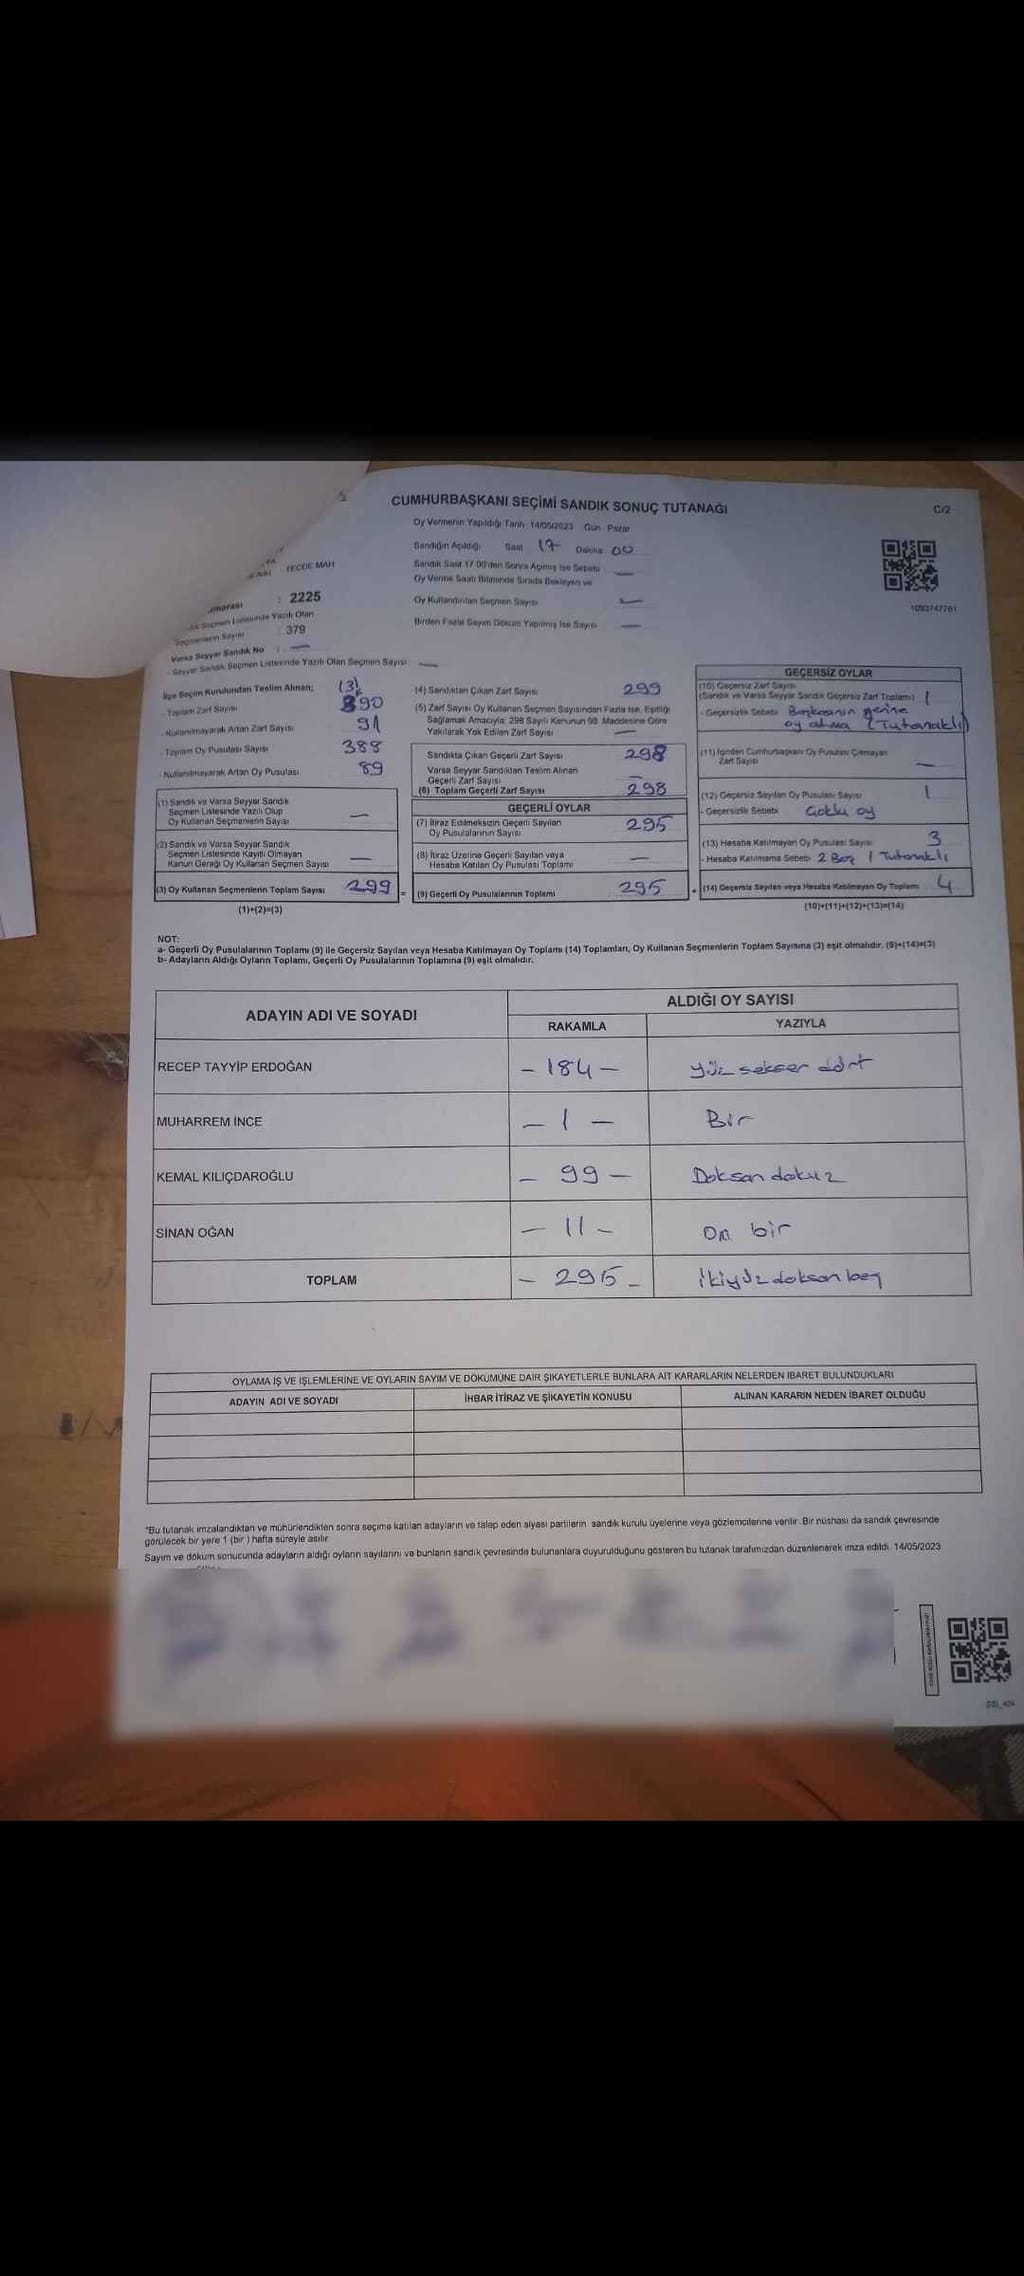 CUMHURBAŞKANI SEÇİMİ SANDIK SONUÇ TUTANAĞI
C/2
Oy Vermenin Yapıldığı Tarih : 14/05/2023 Gün : Pazar
Sandığın Açıldığı Saat 17 Dakika 00
Sandık Saat 17:00'den Sonra Açılmış İse Sebebi —
Oy Verme Saati Bitiminde Sırada Bekleyen ve
Oy Kullandırılan Seçmen Sayısı —
Birden Fazla Sayım Döküm Yapılmış İse Sayısı —
1093747761
TECDE MAH
: 2225
Seçmen Listesinde Yazılı Olan
Seçmenlerin Sayısı : 379
Varsa Seyyar Sandık No : —
- Seyyar Sandık Seçmen Listesinde Yazılı Olan Seçmen Sayısı —
İlçe Seçim Kurulundan Teslim Alınan;
- Toplam Zarf Sayısı 390
- Kullanılmayarak Artan Zarf Sayısı 91
- Toplam Oy Pusulası Sayısı 388
- Kullanılmayarak Artan Oy Pusulası 89
(1) Sandık ve Varsa Seyyar Sandık
Seçmen Listesinde Yazılı Olup
Oy Kullanan Seçmenlerin Sayısı —
(2) Sandık ve Varsa Seyyar Sandık
Seçmen Listesinde Kayıtlı Olmayan
Kanun Gereği Oy Kullanan Seçmen Sayısı —
(3) Oy Kullanan Seçmenlerin Toplam Sayısı 299 =
(1)+(2)=(3)
(4) Sandıktan Çıkan Zarf Sayısı 299
(5) Zarf Sayısı Oy Kullanan Seçmen Sayısından Fazla İse, Eşitliği
Sağlamak Amacıyla, 298 Sayılı Kanunun 98. Maddesine Göre
Yakılarak Yok Edilen Zarf Sayısı —
Sandıkta Çıkan Geçerli Zarf Sayısı 298
Varsa Seyyar Sandıktan Teslim Alınan
Geçerli Zarf Sayısı —
(6) Toplam Geçerli Zarf Sayısı 298
GEÇERLİ OYLAR
(7) İtiraz Edilmeksizin Geçerli Sayılan
Oy Pusulalarının Sayısı 295
(8) İtiraz Üzerine Geçerli Sayılan veya
Hesaba Katılan Oy Pusulası Toplamı —
(9) Geçerli Oy Pusulalarının Toplamı 295 +
GEÇERSİZ OYLAR
(10) Geçersiz Zarf Sayısı
(Sandık ve Varsa Seyyar Sandık Geçersiz Zarf Toplamı) 1
- Geçersizlik Sebebi Başkasının yerine
oy atma (Tutanaklı)
(11) İçinden Cumhurbaşkanı Oy Pusulası Çıkmayan
Zarf Sayısı —
(12) Geçersiz Sayılan Oy Pusulası Sayısı 1
- Geçersizlik Sebebi Çoklu oy
(13) Hesaba Katılmayan Oy Pusulası Sayısı 3
- Hesaba Katılmama Sebebi 2 Boş 1 Tutanaklı
(14) Geçersiz Sayılan veya Hesaba Katılmayan Oy Toplamı 4
(10)+(11)+(12)+(13)=(14)
NOT:
a- Geçerli Oy Pusulalarının Toplamı (9) ile Geçersiz Sayılan veya Hesaba Katılmayan Oy Toplamı (14) Toplamları, Oy Kullanan Seçmenlerin Toplam Sayısına (3) eşit olmalıdır. (9)+(14)=(3)
b- Adayların Aldığı Oyların Toplamı, Geçerli Oy Pusulalarının Toplamına (9) eşit olmalıdır.
ADAYIN ADI VE SOYADI
ALDIĞI OY SAYISI
RAKAMLA YAZIYLA
RECEP TAYYİP ERDOĞAN - 184 - yüz seksen dört
MUHARREM İNCE - 1 - Bir
KEMAL KILIÇDAROĞLU - 99 - Doksan dokuz
SİNAN OĞAN - 11 - On bir
TOPLAM - 295 - ikiyüz doksan beş
OYLAMA İŞ VE İŞLEMLERİNE VE OYLARIN SAYIM VE DÖKÜMÜNE DAİR ŞİKAYETLERLE BUNLARA AİT KARARLARIN NELERDEN İBARET BULUNDUKLARI
ADAYIN ADI VE SOYADI İHBAR İTİRAZ VE ŞİKAYETİN KONUSU ALINAN KARARIN NEDEN İBARET OLDUĞU
*Bu tutanak imzalandıktan ve mühürlendikten sonra seçime katılan adayların ve talep eden siyasi partilerin sandık kurulu üyelerine veya gözlemcilerine verilir. Bir nüshası da sandık çevresinde
görülecek bir yere 1 (bir) hafta süreyle asılır.
Sayım ve döküm sonucunda adayların aldığı oyların sayılarını ve bunların sandık çevresinde bulunanlara duyurulduğunu gösteren bu tutanak tarafımızdan düzenlenerek imza edildi. 14/05/2023